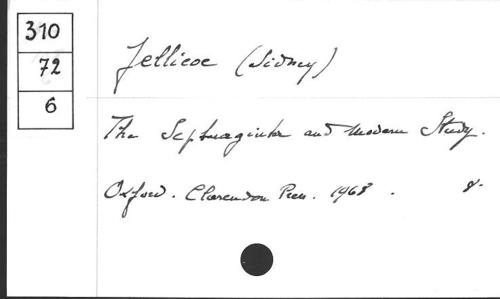 310
72
6
Jellicoe (Sidney)
The Septuaginta and Modern Study.
Oxford. Clarendon Press. 1968. 8.